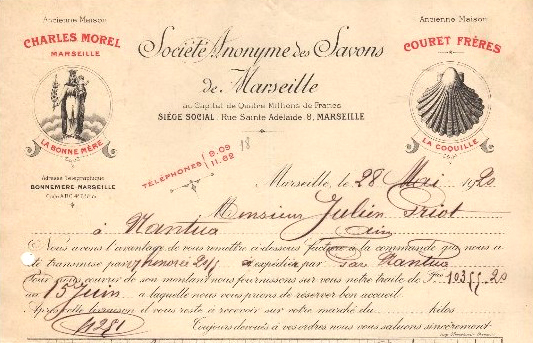 Ancienne Maison
CHARLES MOREL
MARSEILLE
LA BONNE MÈRE
Adresse Télégraphique
BONNEMERE-MARSEILLE
Société Anonyme des Savons
de Marseille
au Capital de Quatre Millions de Francs
SIÈGE SOCIAL: Rue Sainte Adélaïde 8, MARSEILLE
Ancienne Maison
COURET FRÈRES
LA COQUILLE
TÉLÉPHONES 9.09
11.62
18
Marseille, le 28 Mai 1920
Monsieur Julien Priot
à Nantua Ain
Nous avons l'avantage de vous remettre ci-dessous Facture à la commande qui nous a
été transmise par honorée expédiée par Gare Nantua
Pour nous couvrir de son montant nous fournissons sur vous notre traite de Frs
au 15 Juin à laquelle nous vous prions de réserver bon accueil
Après cette livraison il vous reste à recevoir sur votre marché du kilos
Toujours dévoués à vos ordres nous vous saluons sincèrement.